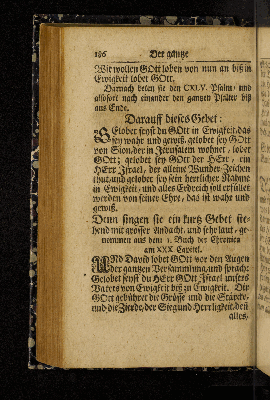 186 Der gantze
Wir wollen GOtt loben von nun an biß in
Ewigkeit lobet GOtt.
Darnach beten sie den CXLV. Psalm, und
allsofort nach einander den gantzen Psalter biß
ans Ende.
Darauff dieses Gebet:
GElobet seyst du GOtt in Ewigkeit, das
sey wahr und gewiß, gelobet sey GOtt
von Sion, der in Jerusalem wohnet, lobet
GOtt; gelobet sey GOtt der HErr, ein
HErr Israel, der alleine Wunder-Zeichen
thut, und gelobet sey sein herrlicher Nahme
in Ewigkeit, und alles Erdreich soll erfüllet
werden von seiner Ehre, das ist wahr und
gewiß.
Denn singen sie ein kurtz Gebet ste-
hend mit grosser Andacht, und sehr laut, ge-
nommen aus dem 1. Buch der Chronica
am XXX. Capitel.
UND David lobet GOtt vor den Augen
der gantzen Versammlung, und sprach:
Gelobet seyst du HErr GOtt Israel unsers
Vaters von Ewigkeit biß zu Ewigkeit. Dir
GOtt gebühret die Grösse und die Stärcke,
und die Zierde, der Sieg und Herrligkeit, den
alles,